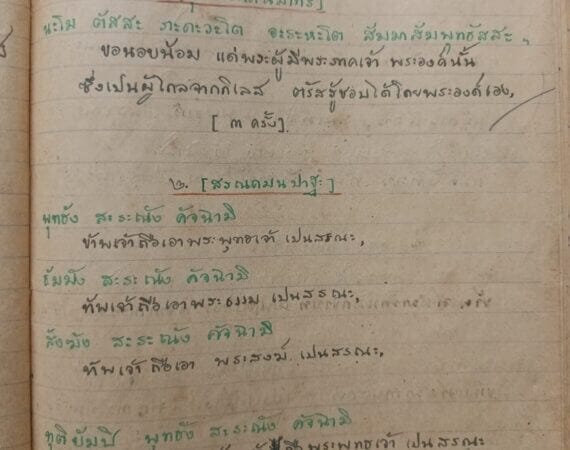 นะโม ตัสสะ ภะคะวะโต อะระหะโต สัมมาสัมพุทธัสสะ,
ขอนอบน้อม แด่พระผู้มีพระภาคเจ้า พระองค์นั้น
ซึ่งเป็นผู้ไกลจากกิเลส ตรัสรู้ชอบได้โดยพระองค์เอง,
[ ๓ ครั้ง ]
๒. [สรณคมนปาฐะ]
พุทธัง สะระณัง คัจฉามิ
ข้าพเจ้าถือเอาพระพุทธเจ้า เป็นสรณะ,
ธัมมัง สะระณัง คัจฉามิ
ข้าพเจ้าถือเอาพระธรรม เป็นสรณะ,
สังฆัง สะระณัง คัจฉามิ
ข้าพเจ้าถือเอา พระสงฆ์ เป็นสรณะ,
ทุติยัมปิ พุทธัง สะระณัง คัจฉามิ
ถือเอาพระพุทธเจ้า เป็นสรณะ